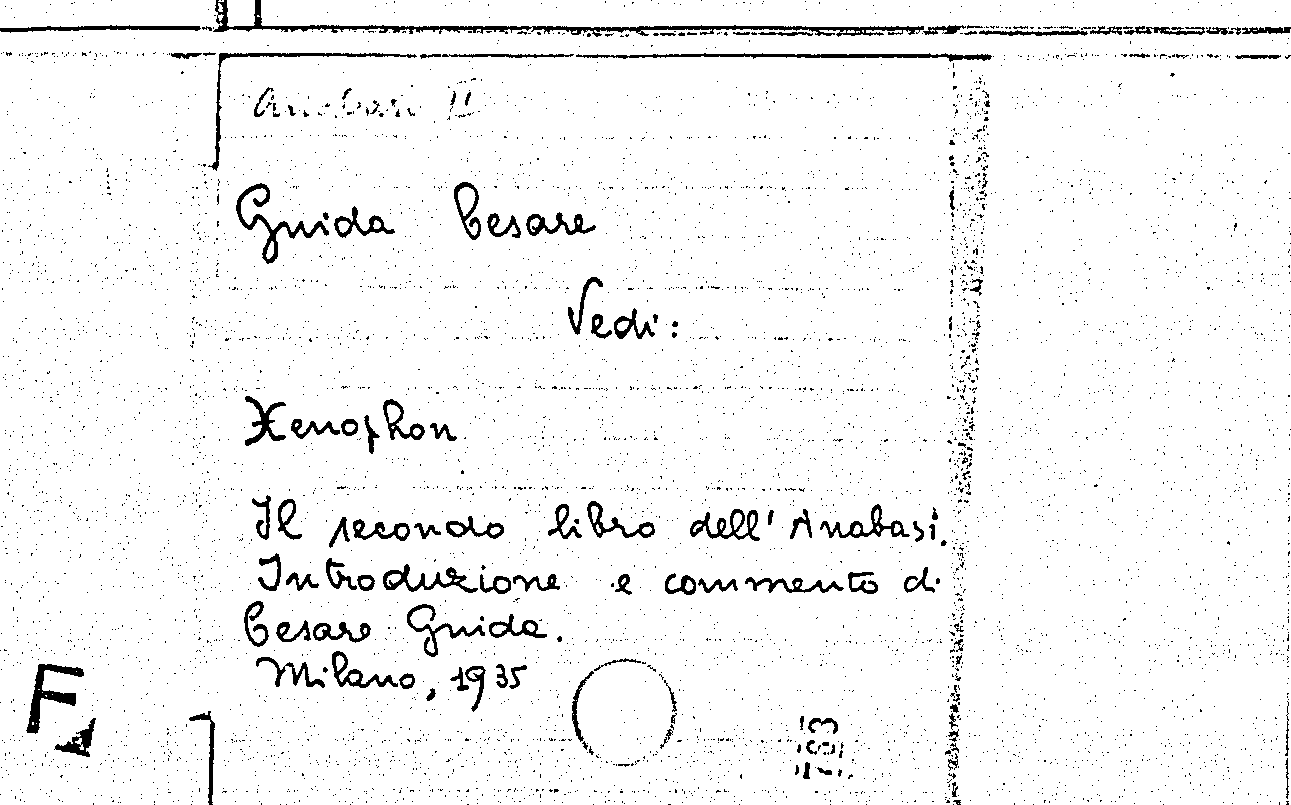 Anabasi II
Guida Cesare
Vedi:
Xenophon
Il secondo libro dell'Anabasi.
Introduzione e commento di
Cesare Guida.
Milano, 1935
F